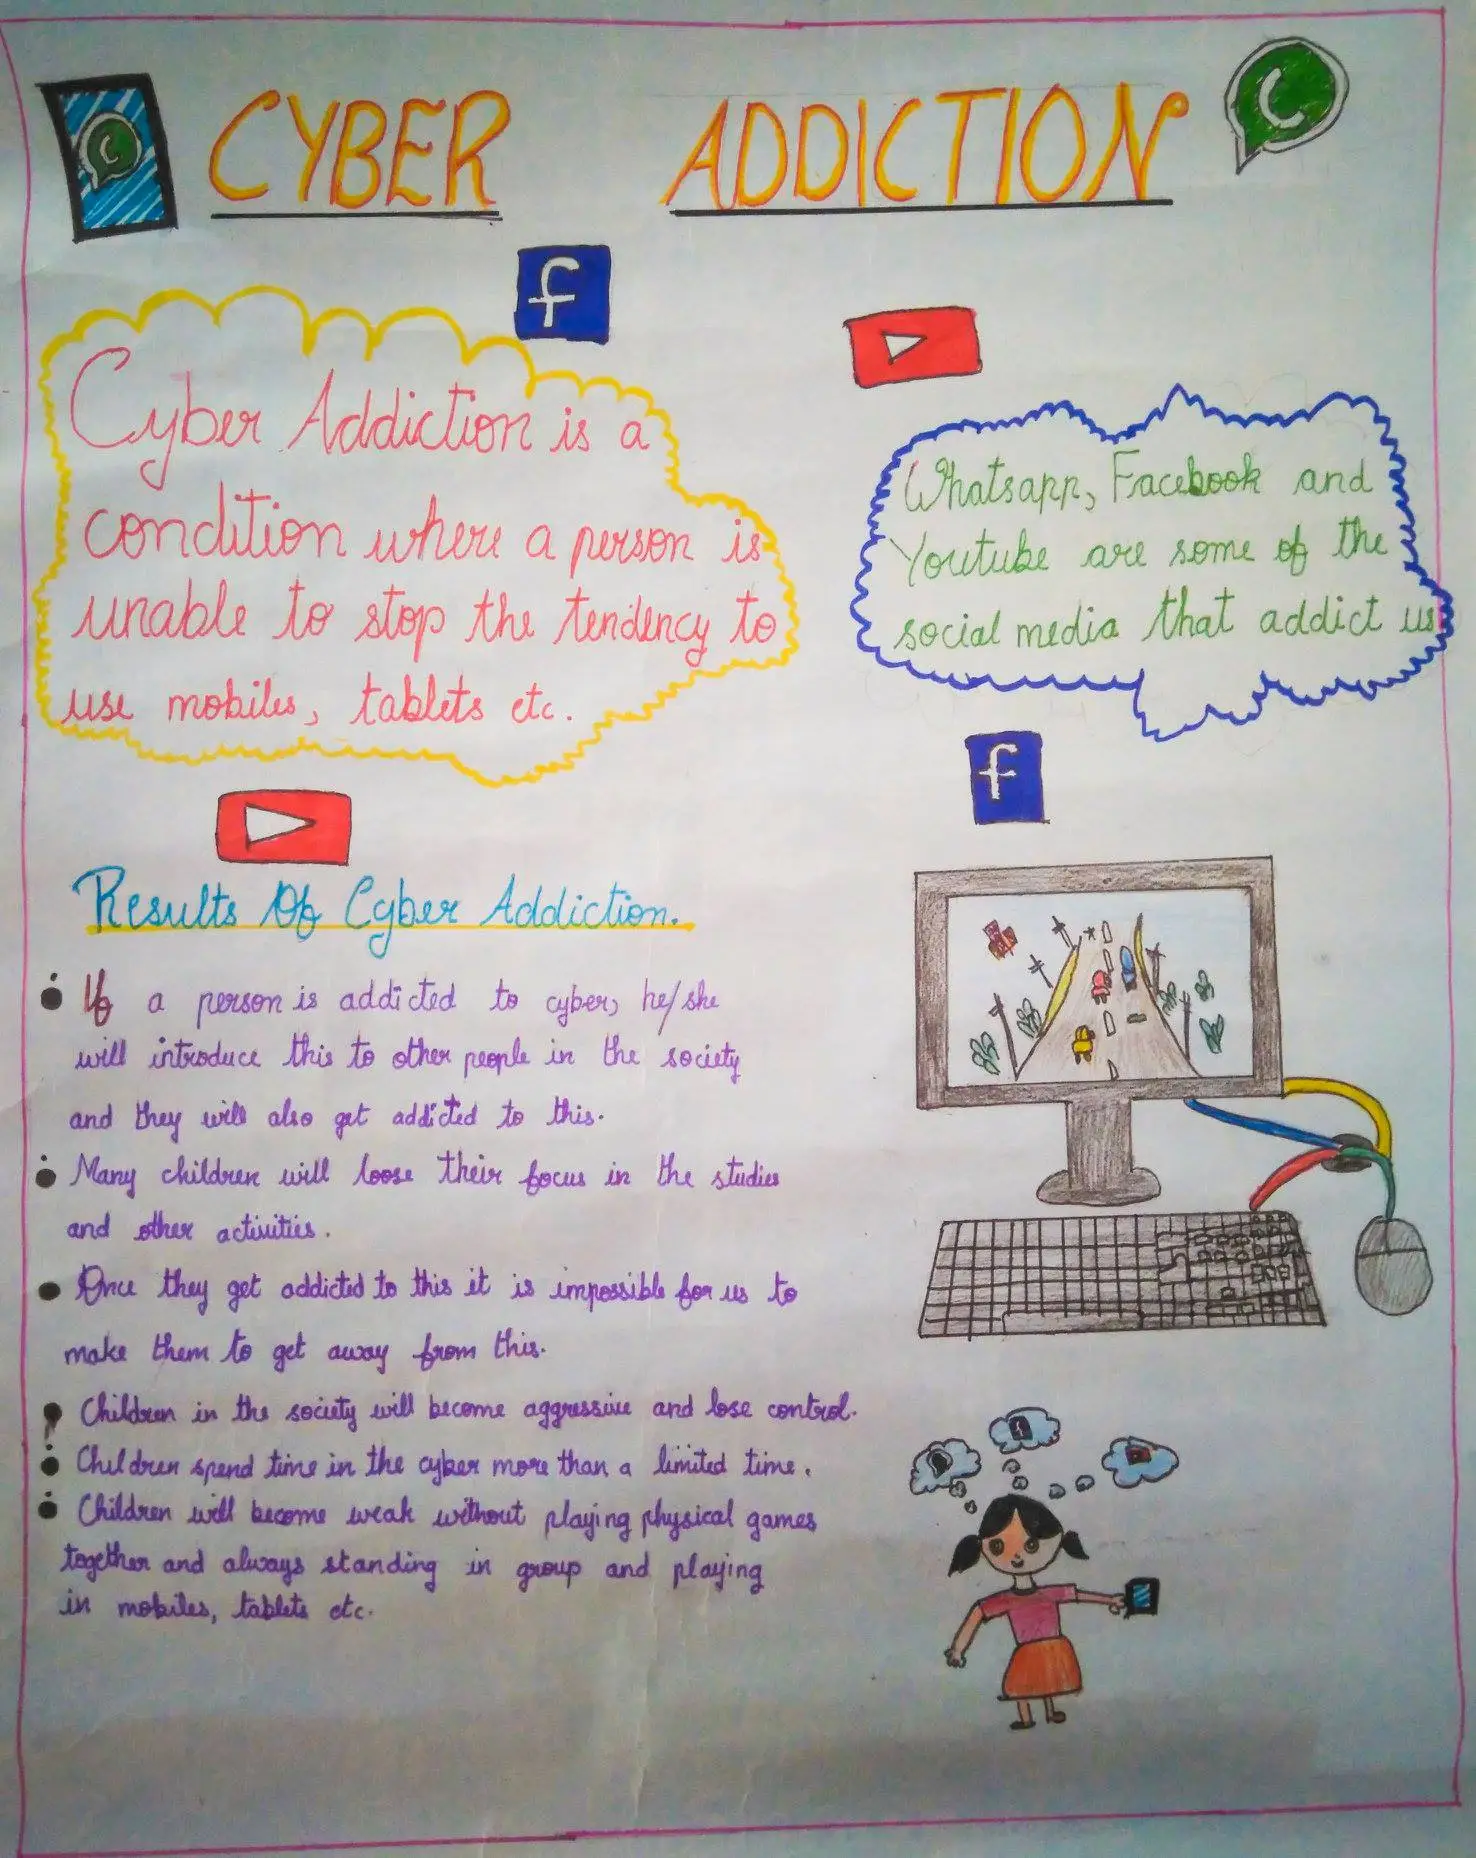 CYBER ADDICTION
f
Cyber Addiction is a
condition where a person is
unable to stop the tendency to
use mobiles, tablets etc.
Whatsapp, Facebook and
Youtube are some of the
social media that addict us
f
Results Of Cyber Addiction.
If a person is addicted to cyber, he/she
will introduce this to other people in the society
and they will also get addicted to this.
Many children will loose their focus in the studies
and other activities.
Once they get addicted to this it is impossible for us to
make them to get away from this.
Children in the society will become aggressive and lose control.
Children spend time in the cyber more than a limited time.
Children will become weak without playing physical games
together and always standing in group and playing
in mobiles, tablets etc.